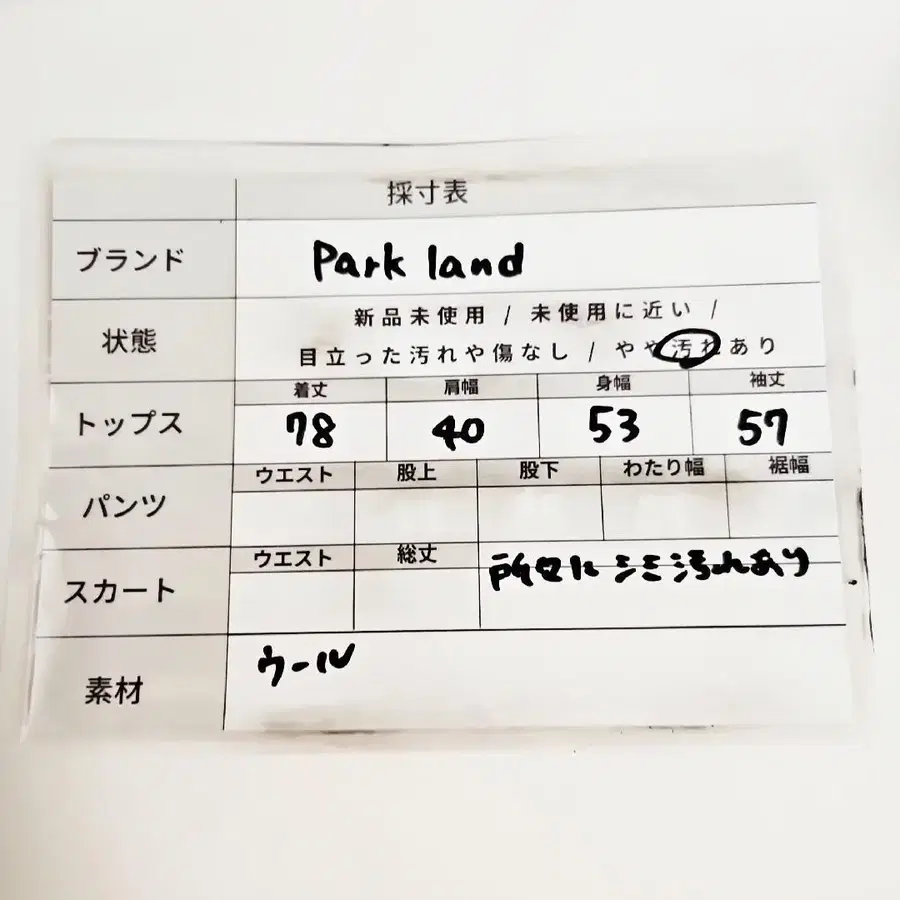 採寸表
ブランド Park land
状態 新品未使用 / 未使用に近い /
目立った汚れや傷なし / やや汚れあり
着丈 肩幅 身幅 袖丈
トップス 78 40 53 57
ウエスト 股上 股下 わたり幅 裾幅
パンツ
ウエスト 総丈 所々に シミ汚れあり
スカート
素材 ウール